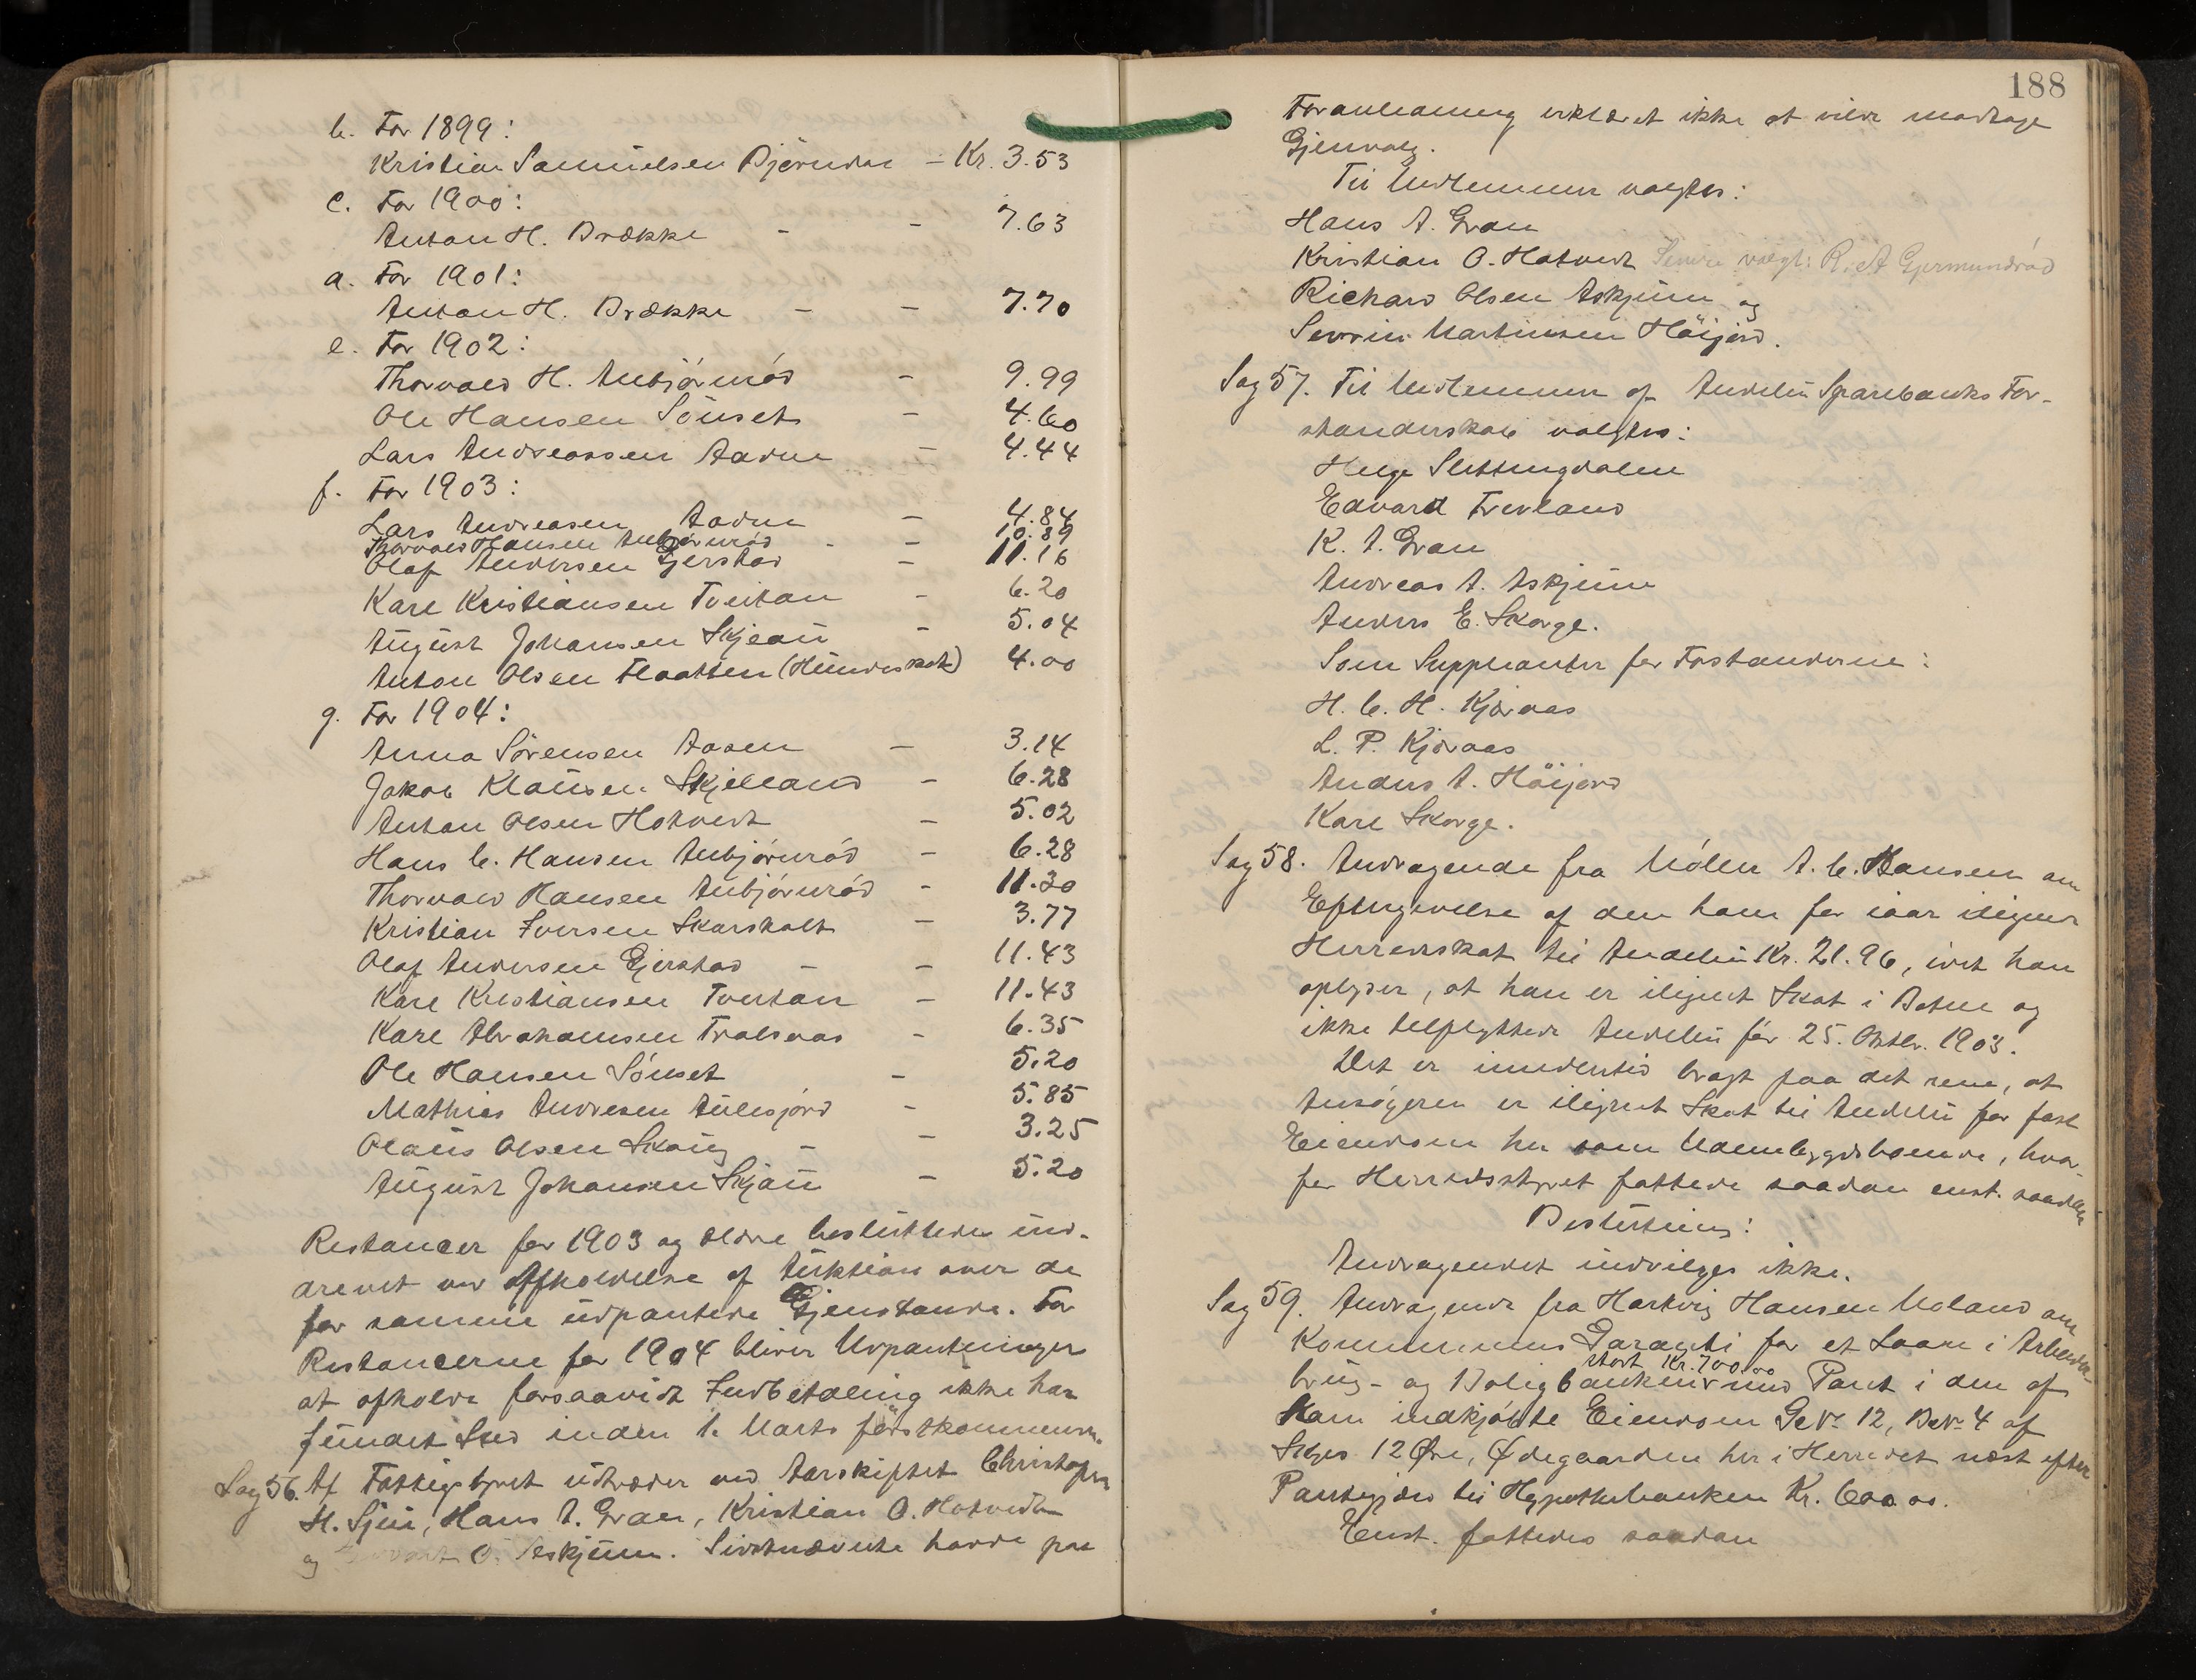 b. For 1899:
Kristian Samuelsen Bjørndal - Kr. 3.53
c. For 1900:
Anton H. Brække - - 7.63
d. For 1901:
Anton H. Brække - - 7.70
e. For 1902:
Thorvald H. Anbjørnrød - 9.99
Ole Hansen Sønset - 4.60
Lars Andreassen Aadne - 4.44
f. For 1903:
Lars Andreasen Aadne - 4.84
Thorvald Hansen Anbjørnrød - - 10.89
Olaf Andersen Gjerstad - 11.16
Karl Kristiansen Tveitan - 6.20
August Johansen Skjeau - 5.04
Anton Olsen Flaatten (Hundeskat) 4.00
g. For 1904:
Anna Sørensen Aasen - 3.14
Jakob Klausen Skjelland - 6.28
Anton Olsen Hotvedt - 5.02
Hans C. Hansen Anbjørnrød - 6.28
Thorvald Hansen Anbjørnrød - 11.30
Kristian Iversen Skarsholt - 3.77
Olaf Andersen Gjerstad - - 11.43
Karl Kristiansen Tveitan - 11.43
Karl Abrahamsen Tralsaas - 6.35
Ole Hansen Sønset - 5.20
Mathias Andresen Aulesjord - 5.85
Olaus Olsen Skaug - - 3.25
August Johansen Skjau - 5.20
Restancer for 1903 og ældre besluttedes ind-
drevet ved Afholdelse af Auktion over de
for samme udpantede Gjenstande. For
Restancerne for 1904 bliver Udpantninger
at afholde forsaavidt Indbetaling ikke har
fundet Sted inden 1. Marts førstkommende.
Sag 56. Af Fattigstyret udtræder ved Aarskiftet Christopher
H. Sjui, Hans A. Gran, Kristian O. Hotvedt
og O. Askjum. Sidstnævnte havde paa
188
Foranledning erklæret ikke at ville modtage
Gjenvalg.
Til Medlemmer valgtes:
Hans A. Gran
Kristian O. Hotvedt Senere valgt: R. A. Gjermundrød
Richard Olsen Askjum og
Severin Martinsen Høijord.
Sag 57. Til Medlemmer af Andebu Sparebanks For-
standerskab valgtes:
Helge Slettingdalen
Edvard Trevland
K. A. Gran
Andreas A. Askjum
Anders E. Skorge.
Som Suppleanter for Forstanderne:
H. C. H. Kjæraas
L. P. Kjæraas
Anders A. Høijord
Karl Skorge.
Sag 58. Andragende fra Møller A. C. Hansen om
Eftergivelse af den ham for iaar ilignede
Herredsskat til Andebu Kr. 21.96, idet han
oplyser, at han er ilignet Skat i Botne og
ikke tilflyttede Andebu før 25. Oktbr. 1903.
Det er imidlertid bragt paa det rene, at
Ansøgeren er ilignet Skat til Andebu for fast
Eiendom her som Udenbygdsboende, hvor-
for Herredsstyret fattede saadan enst. saadan
Beslutning:
Andragendet indvilges ikke.
Sag 59. Andragende fra Hartvig Hansen Moland om
Kommunens Garanti for et Laan i Arbeider-
brug- og Boligbanken stort Kr. 700.00 mod Pant i den af
ham indkjøbte Eiendom GNr. 12, BNr. 4 af
Skyld 12 Øre, Ødegaarden her i Herredet næst efter
Pantegjæld til Hypothekbanken Kr. 600.00.
Enst. fattedes saadan